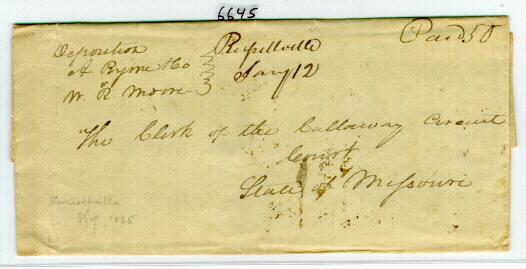 6645
Paid 50
Deposition
A Byrne & Co
vs
W. R. Moore
Russellville
Jany 12
The Clerk of the Callaway Circuit
Court
State of Missouri
Russellville
Ky 1825